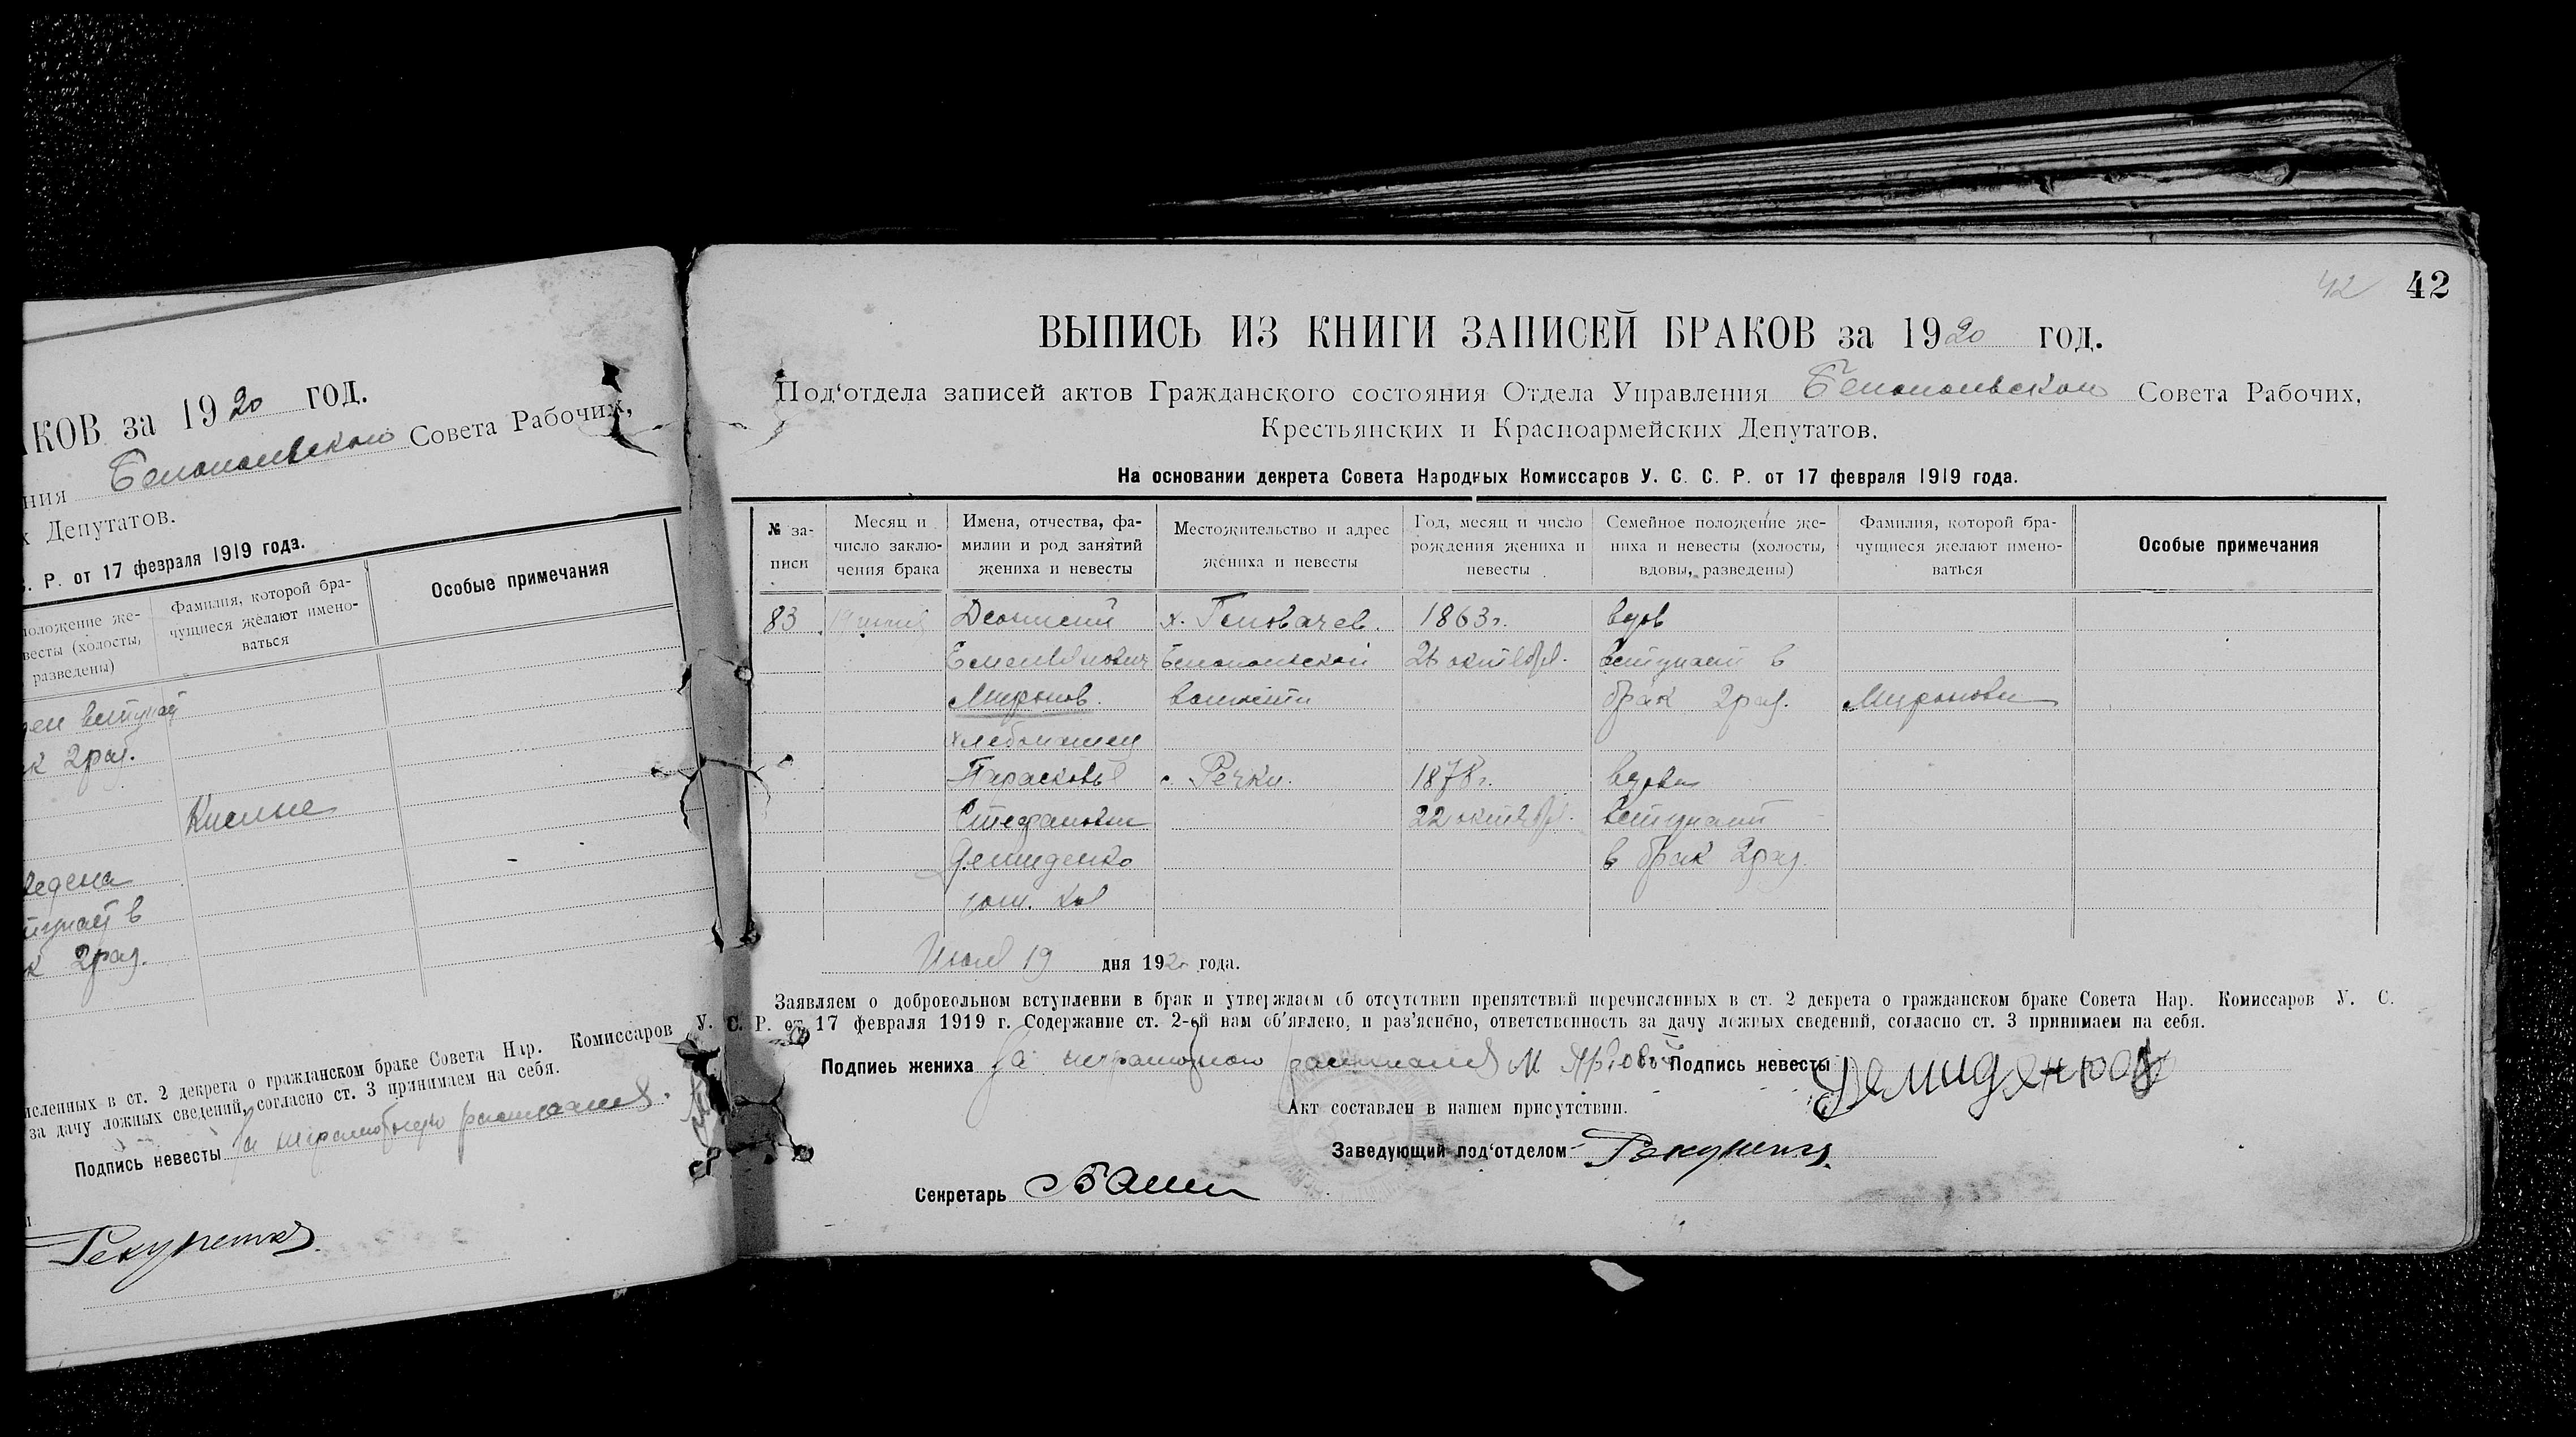 КОВ за 1920 год.
ния Белопольской Совета Рабочих,
Депутатов.
. Р. от 17 февраля 1919 года.
положение же-
весты (холосты,
разведены)
Фамилия, которой бра-
чущиеся желают имено-
ваться
Особые примечания
ден вступает
к 2 раз.
Кислые
ведена
тупает в
к 2 раз.
численных в ст. 2 декрета о гражданском браке Совета Нар. Комиссаров У. С.
за дачу ложных сведений, согласно ст. 3 принимаем на себя.
Подпись невесты За неграмотную расписался
Рекунетка
42 42
ВЫПИСЬ ИЗ КНИГИ ЗАПИСЕЙ БРАКОВ за 1920 год.
Под'отдела записей актов Гражданского состояния Отдела Управления Белопольской Совета Рабочих,
Крестьянских и Красноармейских Депутатов.
На основании декрета Совета Народных Комиссаров У. С. С. Р. от 17 февраля 1919 года.
№ за-
писи
Месяц и
число заклю-
чения брака
Имена, отчества, фа-
милии и род занятий
жениха и невесты
Местожительство и адрес
жениха и невесты
Год, месяц и число
рождения жениха и
невесты
Семейное положение же-
ниха и невесты (холосты,
вдовы, разведены)
Фамилия, которой бра-
чущиеся желают имено-
ваться
Особые примечания
83 19 Деонисий х. Головачев. 1863 г. вдов
Емельянович Белопольской 26 октября. вступает в
Миронов. волости брак 2 раз. Мироновы
хлебопашец
Парасковья с. Речки. 1878 г. вдова
Стефановна 22 октября. вступает
Демиденко в брак 2 раз.
дом. хоз
19 дня 1920 года.
Заявляем о добровольном вступлении в брак и утверждаем об отсутствии препятствий перечисленных в ст. 2 декрета о гражданском браке Совета Нар. Комиссаров У. С.
С. Р. от 17 февраля 1919 г. Содержание ст. 2-ой нам об'явлено, и раз'яснено, ответственность за дачу ложных сведений, согласно ст. 3 принимаем на себя.
Подпись жениха За неграмотного расписался М Подпись невесты
Акт составлен в нашем присутствии.
Заведующий под'отделом
Секретарь